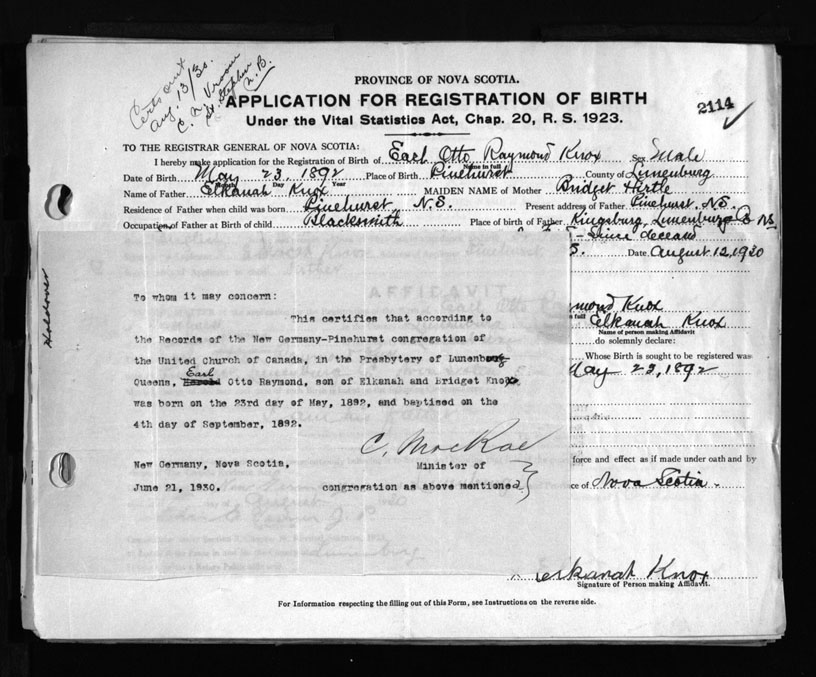 Certs out
Aug. 13/30.
C. N. Vroom
St. Stephen
N. B.
PROVINCE OF NOVA SCOTIA.
APPLICATION FOR REGISTRATION OF BIRTH
2114
Under the Vital Statistics Act, Chap. 20, R. S. 1923.
TO THE REGISTRAR GENERAL OF NOVA SCOTIA:
I hereby make application for the Registration of Birth of Earl Otto Raymond Knox Sex Male
Name in full
Date of Birth May 23, 1892 Place of Birth Pinehurst County of Lunenburg
Month Day Year
Name of Father Elkanah Knox MAIDEN NAME of Mother Bridget Hirtle
Residence of Father when child was born Pinehurst N.S. Present address of Father Pinehurst. N.S.
Occupation of Father at Birth of child Blacksmith Place of birth of Father Kingsburg, Lunenburg Co NS
Since deceased
S. Date August 12, 1930
Holdover
To whom it may concern:
This certifies that according to
the Records of the New Germany-Pinehurst congregation of
the United Church of Canada, in the Presbytery of Lunenburg
Earl
Queens, Harold Otto Raymond, son of Elkanah and Bridget Knox,
was born on the 23rd day of May, 1892, and baptised on the
4th day of September, 1892.
C. MacRae
New Germany, Nova Scotia, Minister of
June 21, 1930. congregation as above mentioned.
AFFIDAVIT
ymond Knox
in full
Elkanah Knox
Name of person making Affidavit
do solemnly declare:
Whose Birth is sought to be registered was
May 23, 1892
force and effect as if made under oath and by
ce of Nova Scotia.
Elkanah Knox
Signature of Person making Affidavit.
For Information respecting the filling out of this Form, see Instructions on the reverse side.